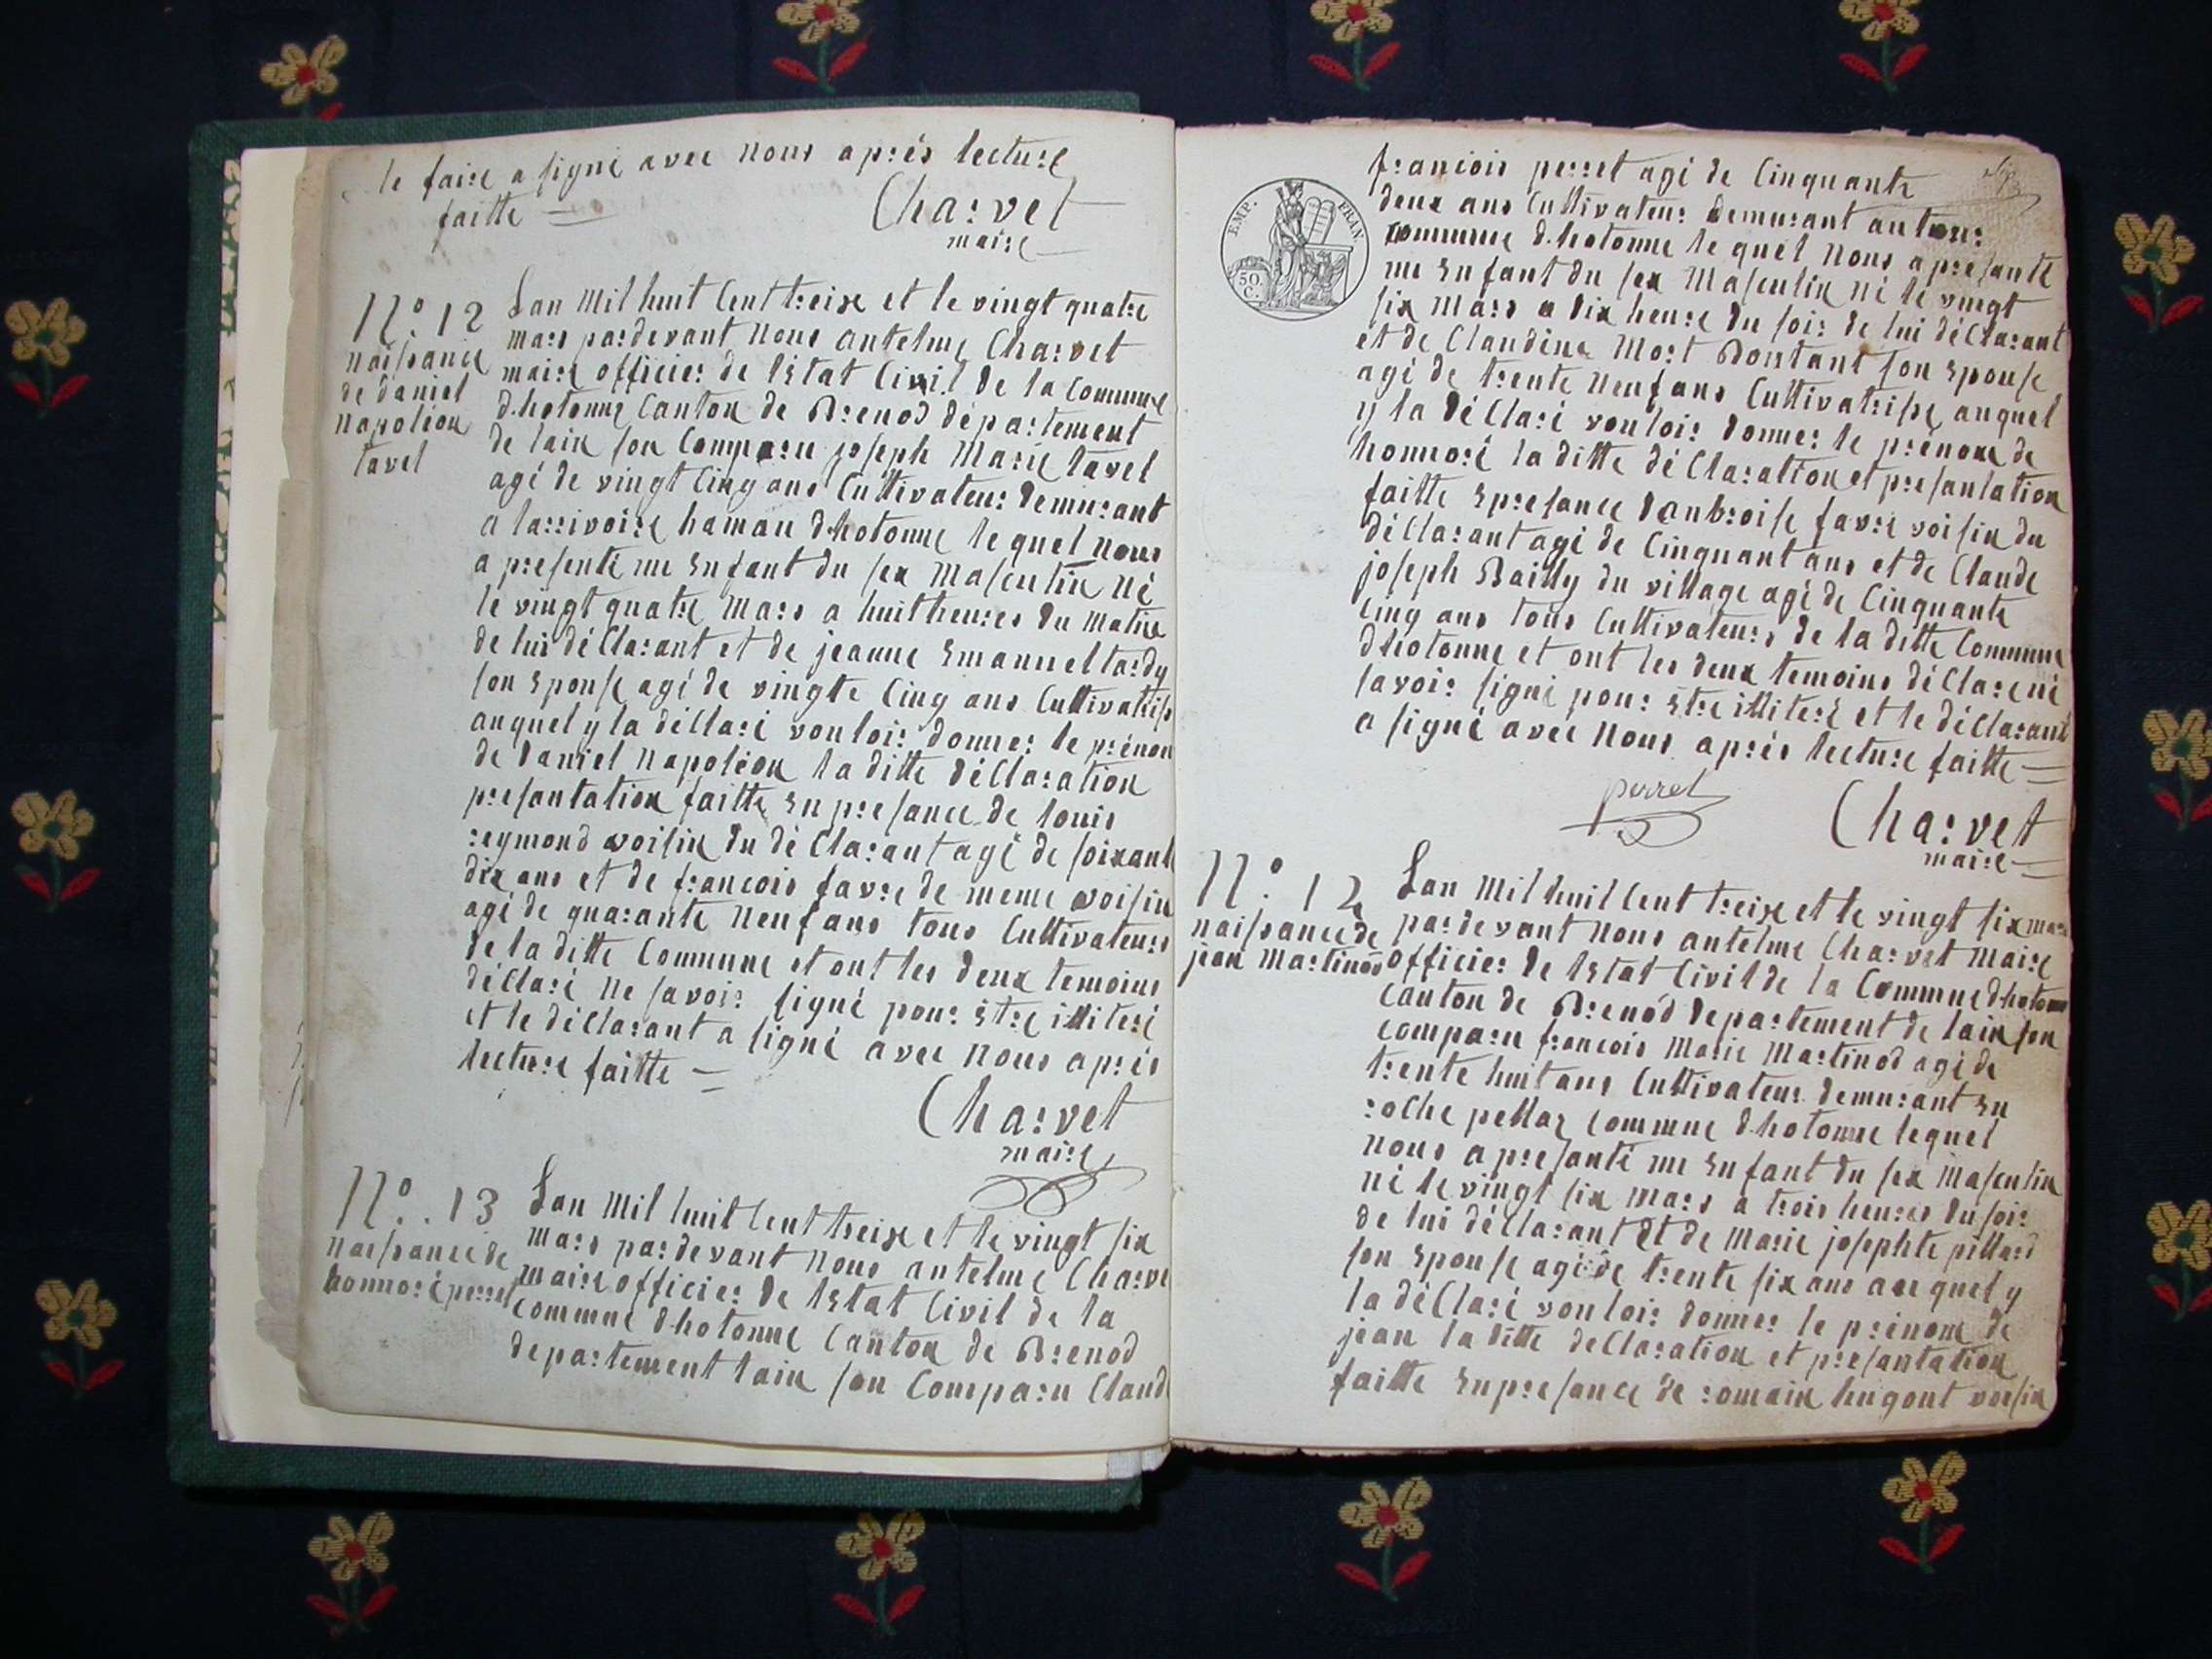 le faire a signé avec nous aprés lecture
faitte
Charvet
maire
N.º 12
naissance
de daniel
napoléon
tavel
Lan mil huit cent treize et le vingt quatre
mars pardevant nous antelme Charvet
maire officier de létat civil de la commune
d'hotonne canton de Brenod département
de lain son comparu joseph marie tavel
agé de vingt cinq ans cultivateur demurant
a larrivoire hamau d'hotonne le quel nous
a presenté un enfant du sex masculin né
le vingt quatre mars a huit heures du matin
de lui déclarant et de jeanne emanuel tardy
son epouse agé de vingte cinq ans cultivatriss
auquel y la déclaré vouloir donner le prénom
de daniel napoléon la ditte déclaration
presantation faitte en presance de louis
reymond voisin du déclarant agé de soixante
dix ans et de francois favre de meme voisin
agé de quarante neuf ans tous cultivateurs
de la ditte commune et ont les deux temoins
déclaré ne savoir signé pour etre illiteré
et le déclarant a signé avec nous aprés
lecture faitte
Charvet
maire
N.º 13
naissance de
honnoré perret
Lan mil huit cent treize et le vingt six
mars pardevant nous antelme Charve
maire officier de létat civil de la
commune d'hotonne canton de Brenod
departement lain son comparu Claude
EMP. FRAN.
50 C.
francois perret agé de cinquante
deux ans cultivateur demurant au
commune d'hotonne le quel nous a presanté
un enfant du sex masculin né le vingt
six mars a dix heure du soir de lui déclarant
et de Claudine mort son epouse
agé de trente neuf ans cultivatrisse auquel
y la déclaré vouloir donner le prénom de
honnoré la ditte déclaration et presantation
faitte epresance danbroise favre voisin du
déclarant agé de cinquant ans et de Claude
joseph Bailly du village agé de cinquante
cinq ans tous cultivateurs de la ditte commune
d'hotonne et ont les deux temoins déclare ne
savoir signé pour etre illiteré et le déclarant
a signé avec nous aprés lecture faitte
perret
Charvet
maire
N.º 12
naissance de
jean martinod
Lan mil huit cent treize et le vingt six mars
pardevant nous antelme Charvet maire
officier de létat civil de la commune d'hotonne
canton de Brenod departement de lain son
comparu francois marie martinod agé de
trente huit ans cultivateur demurant en
roche pellaz commune d'hotonne lequel
nous a presanté un enfant du sex masculin
né le vingt six mars a trois heures du soir
de lui déclarant et de marie josephte pillard
son epouse agé de trente six ans au quel y
la déclaré vouloir donner le prénom de
jean la ditte declaration et presantation
faitte en presance de romain hugont voisin